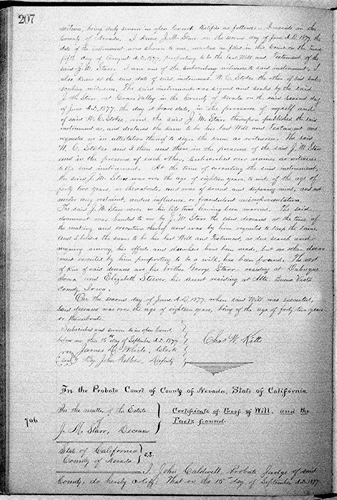 207
witness, being duly sworn in open Court, testifies as follows: I reside in the
County of Nevada. I knew J. M. Starr, on the second day of June A.D. 1877, the
date of the instrument now shown to me, marked as filed in this Court on the
fifth day of August A.D. 1877, purporting to be the last Will and Testament of the
said J. M. Starr. I am one of the subscribing witnesses to said instrument. I
also knew at the said date of said instrument, W. C. Stokes the other
subscribing witness. The said instrument was signed and sealed by the said
J. M. Starr, at Grass Valley in the County of Nevada on the said second day
of June A.D. 1877, the day it bears date, in the presence of myself and
of said W. C. Stokes, and the said J. M. Starr thereupon published the said
instrument as, and declared the same to be his last Will and Testament and
requests us in attestation thereof to sign the same as witnesses. The said
W. C. Stokes and I then and there in the presence of the said J. M. Starr
and in the presence of each other, subscribed our names as witnesses
to said instrument. At the time of executing the said instrument
the said J. M. Starr was over the age of eighteen years, to wit: of the age of
forty two years, or thereabouts, and was of sound and disposing mind, and not
under any restraint, undue influence, or fraudulent misrepresentation.
The said J. M. Starr
document was handed to me by J. M. Starr the said deceased at the time of
the making and execution thereof and was by him requested to keep the same
and I believe the same to be his last Will and Testament, as due search and
inquiry among his effects and papers have been made, but no other
and executed by him purporting to be a will, has been found. The
of kin of said deceased are his brother George Starr, residing at Dubuque
Iowa and Elizabeth
County Iowa.
On the second day of June A.D. 1877, when said Will was executed,
said deceased was over the age of eighteen years, being of the age of forty two years
or thereabouts.
Subscribed and sworn to in open Court
before me this 15th day of September A.D. 1877
James D. White, Clerk
By John Deputy
Chas W. Kitts
In the Probate Court of County of Nevada, State of California
706
In the matter of the Estate
of
J. M. Starr, Deceased
Certificate of Proof of Will, and the
Facts found.
State of California
County of Nevada
ss.
I, John Caldwell, Probate Judge of said
County, do hereby certify: That on the 15th day of September A.D. 1877